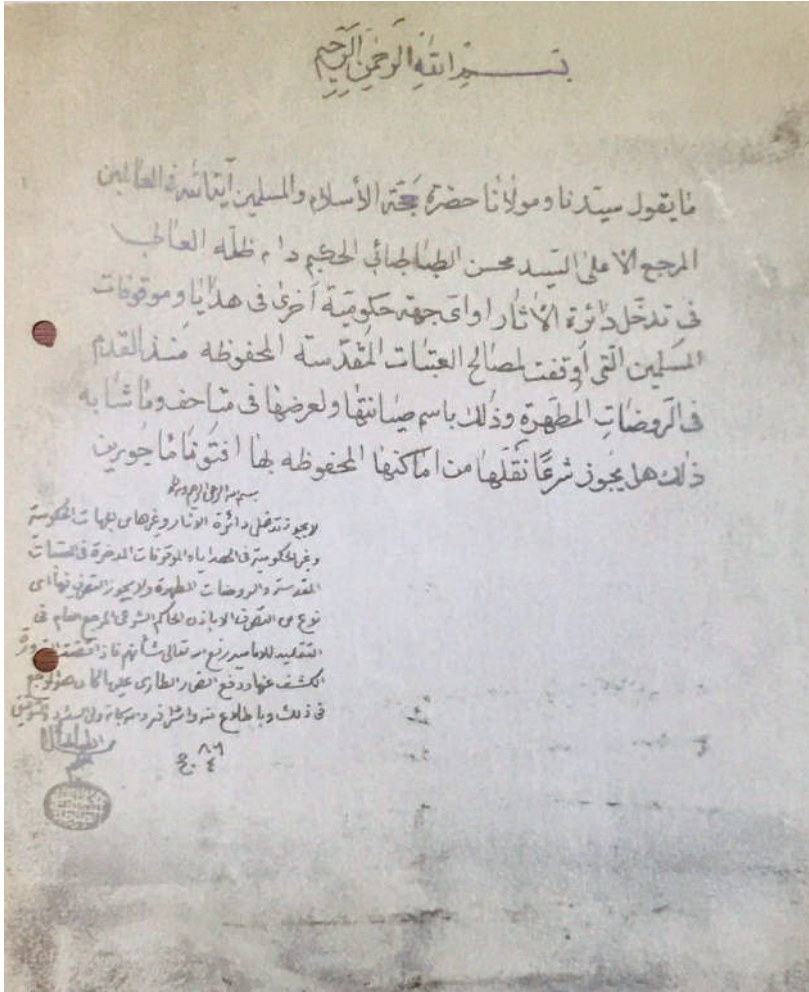 بسم الله الرحمن الرحيم
ما يقول سيدنا ومولانا حضرة حجة الأسلام والمسلمين آية الله في العالمين
المرجع الاعلى السيد محسن الطباطبائي الحكيم دام ظله العالي
في تدخل دائرة الآثار او اي جهة حكومية أخرى في هدايا وموقوفات
المسلمين التي أوقفت لمصالح العتبات المقدسه المحفوظه منذ القدم
في الروضات المطهرة وذلك باسم صيانتها ولعرضها في متاحف وما شابه
ذلك هل يجوز شرعًا نقلها من اماكنها المحفوظه بها افتونا مأجورين
بسم الله الرحمن الرحيم وله الحمد
لا يجوز تدخل دائرة الاثار وغيرها من الجهات الحكومية
وغير الحكومية في الهدايا والموقوفات المدخرة في العتبات
المقدسة والروضات المطهرة ولا يجوز التصرف فيها اى
نوع من التصرف الا باذن الحاكم الشرعي المرجع العام في
التقليد للامامية رفع الله تعالى شأنهم فاذا اقتضت الضرورة
الكشف عنها ودفع الضرر الطارئ عليها كان هو المرجع
في ذلك وباطلاع منه واشراف والله سبحانه ولي التسديد والتوفيق
٨٦
٤ ج